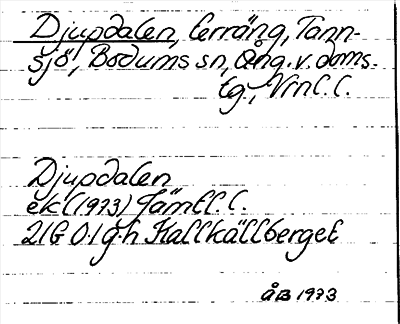 Djupdalen, terräng, Tann-
sjö, Bodums sn, Ång. v. doms.
tg., Vrnl. l.
Djupdalen
ek (1973) Jämtl. l.
21G 0-1 g-h Kallkällberget
ÅB 1973